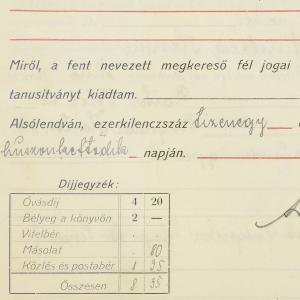 Miről, a fent nevezett megkereső fél jogai
tanusitványt kiadtam.
Alsólendván, ezerkilenczszáz tizenegy
huszonkettedik napján.
Dijjegyzék:
Óvásdíj 4 20
Bélyeg a könyvön 2 —
Vitelbér . .
Másolat . 80
Közlés és postabér 1 35
Összesen 8 35